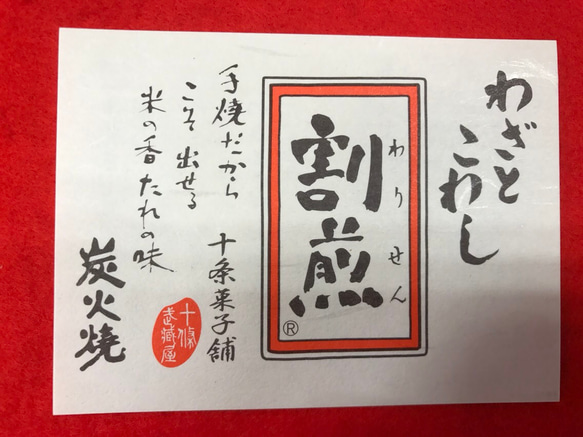 わざと
こわし
割煎
わりせん
®
手焼だから
こそ出せる
米の香たれの味
十条菓子舗
十條
武蔵屋
炭火焼